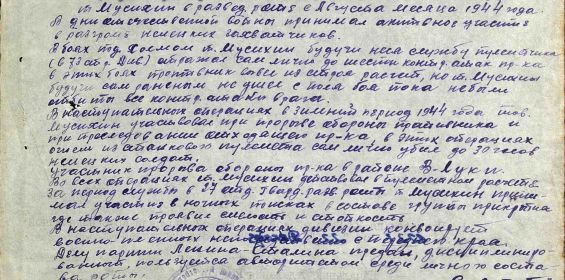 т. Мусихин в развед. роте с Августа месяца 1944 года.
В дни отечественной войны принимал активное участие
в разгроме немецких захватчиков.
В боях под Холмом т. Мусихин будучи неся службу пулеметчика
отражал сам лично до шести контр. атак пр-ка
в этих боях противник вывел из строя расчет, но т. Мусихин
будучи сам раненым не ушел с поля боя пока не были
отбиты все контр. атаки врага.
В наступательных операциях в зимний период 1944 года тов.
Мусихин участвовал при прорыве обороны противника и
при преследовании отходящего пр-ка. в этих операциях
огнем из станкового пулемета сам лично убил до 30 гансов
немецких солдат.
Участник прорыва обороны пр-ка в районе В-Луки.
Во всех операциях т. Мусихин действовал в пулеметном расчете
За период службы в 27 отд. Гвард. разв. роты т. Мусихин прини-
мал участия в ночных поисках в составе группы прикрытия
где также проявил смелость и стойкость
В наступательных операциях дивизии конвоирует
военно-пленных с переднего края.
Делу партии Ленина-Сталина предан, дисциплиниро-
ванный пользуется авторитетом среди личного соста-
ва роты.